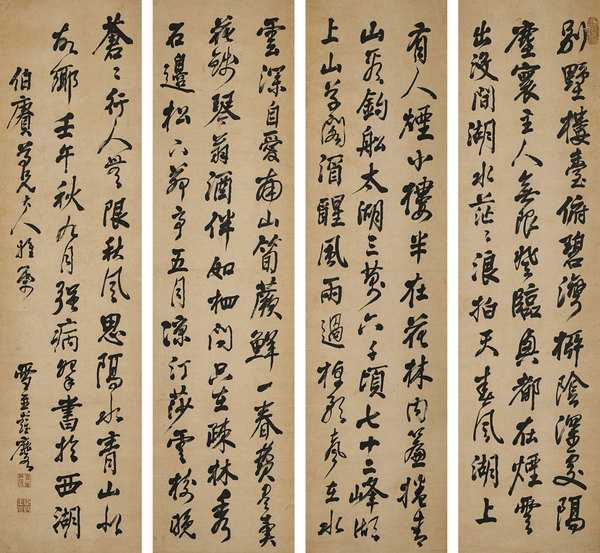 别墅樓臺俯碧灣柳陰深處隔
塵寰主人無限登臨興都在煙雲
出没間湖水茫茫浪拍天春風湖上
有人煙小樓半在花林内簾捲青
山看釣船太湖三萬六千頃七十二峰湖
上山草閣酒醒風雨過櫂歌聲在水
雲深自愛南山筍蕨鮮一春費盡賣
花錢琴翁酒伴如相問只在疎林秀
石邊松下茆亭五月涼汀莎雲樹晚
蒼々行人無限秋風思隔水青山似
故鄉壬午秋九月強病書於西湖
伯賡尊兄大人雅屬